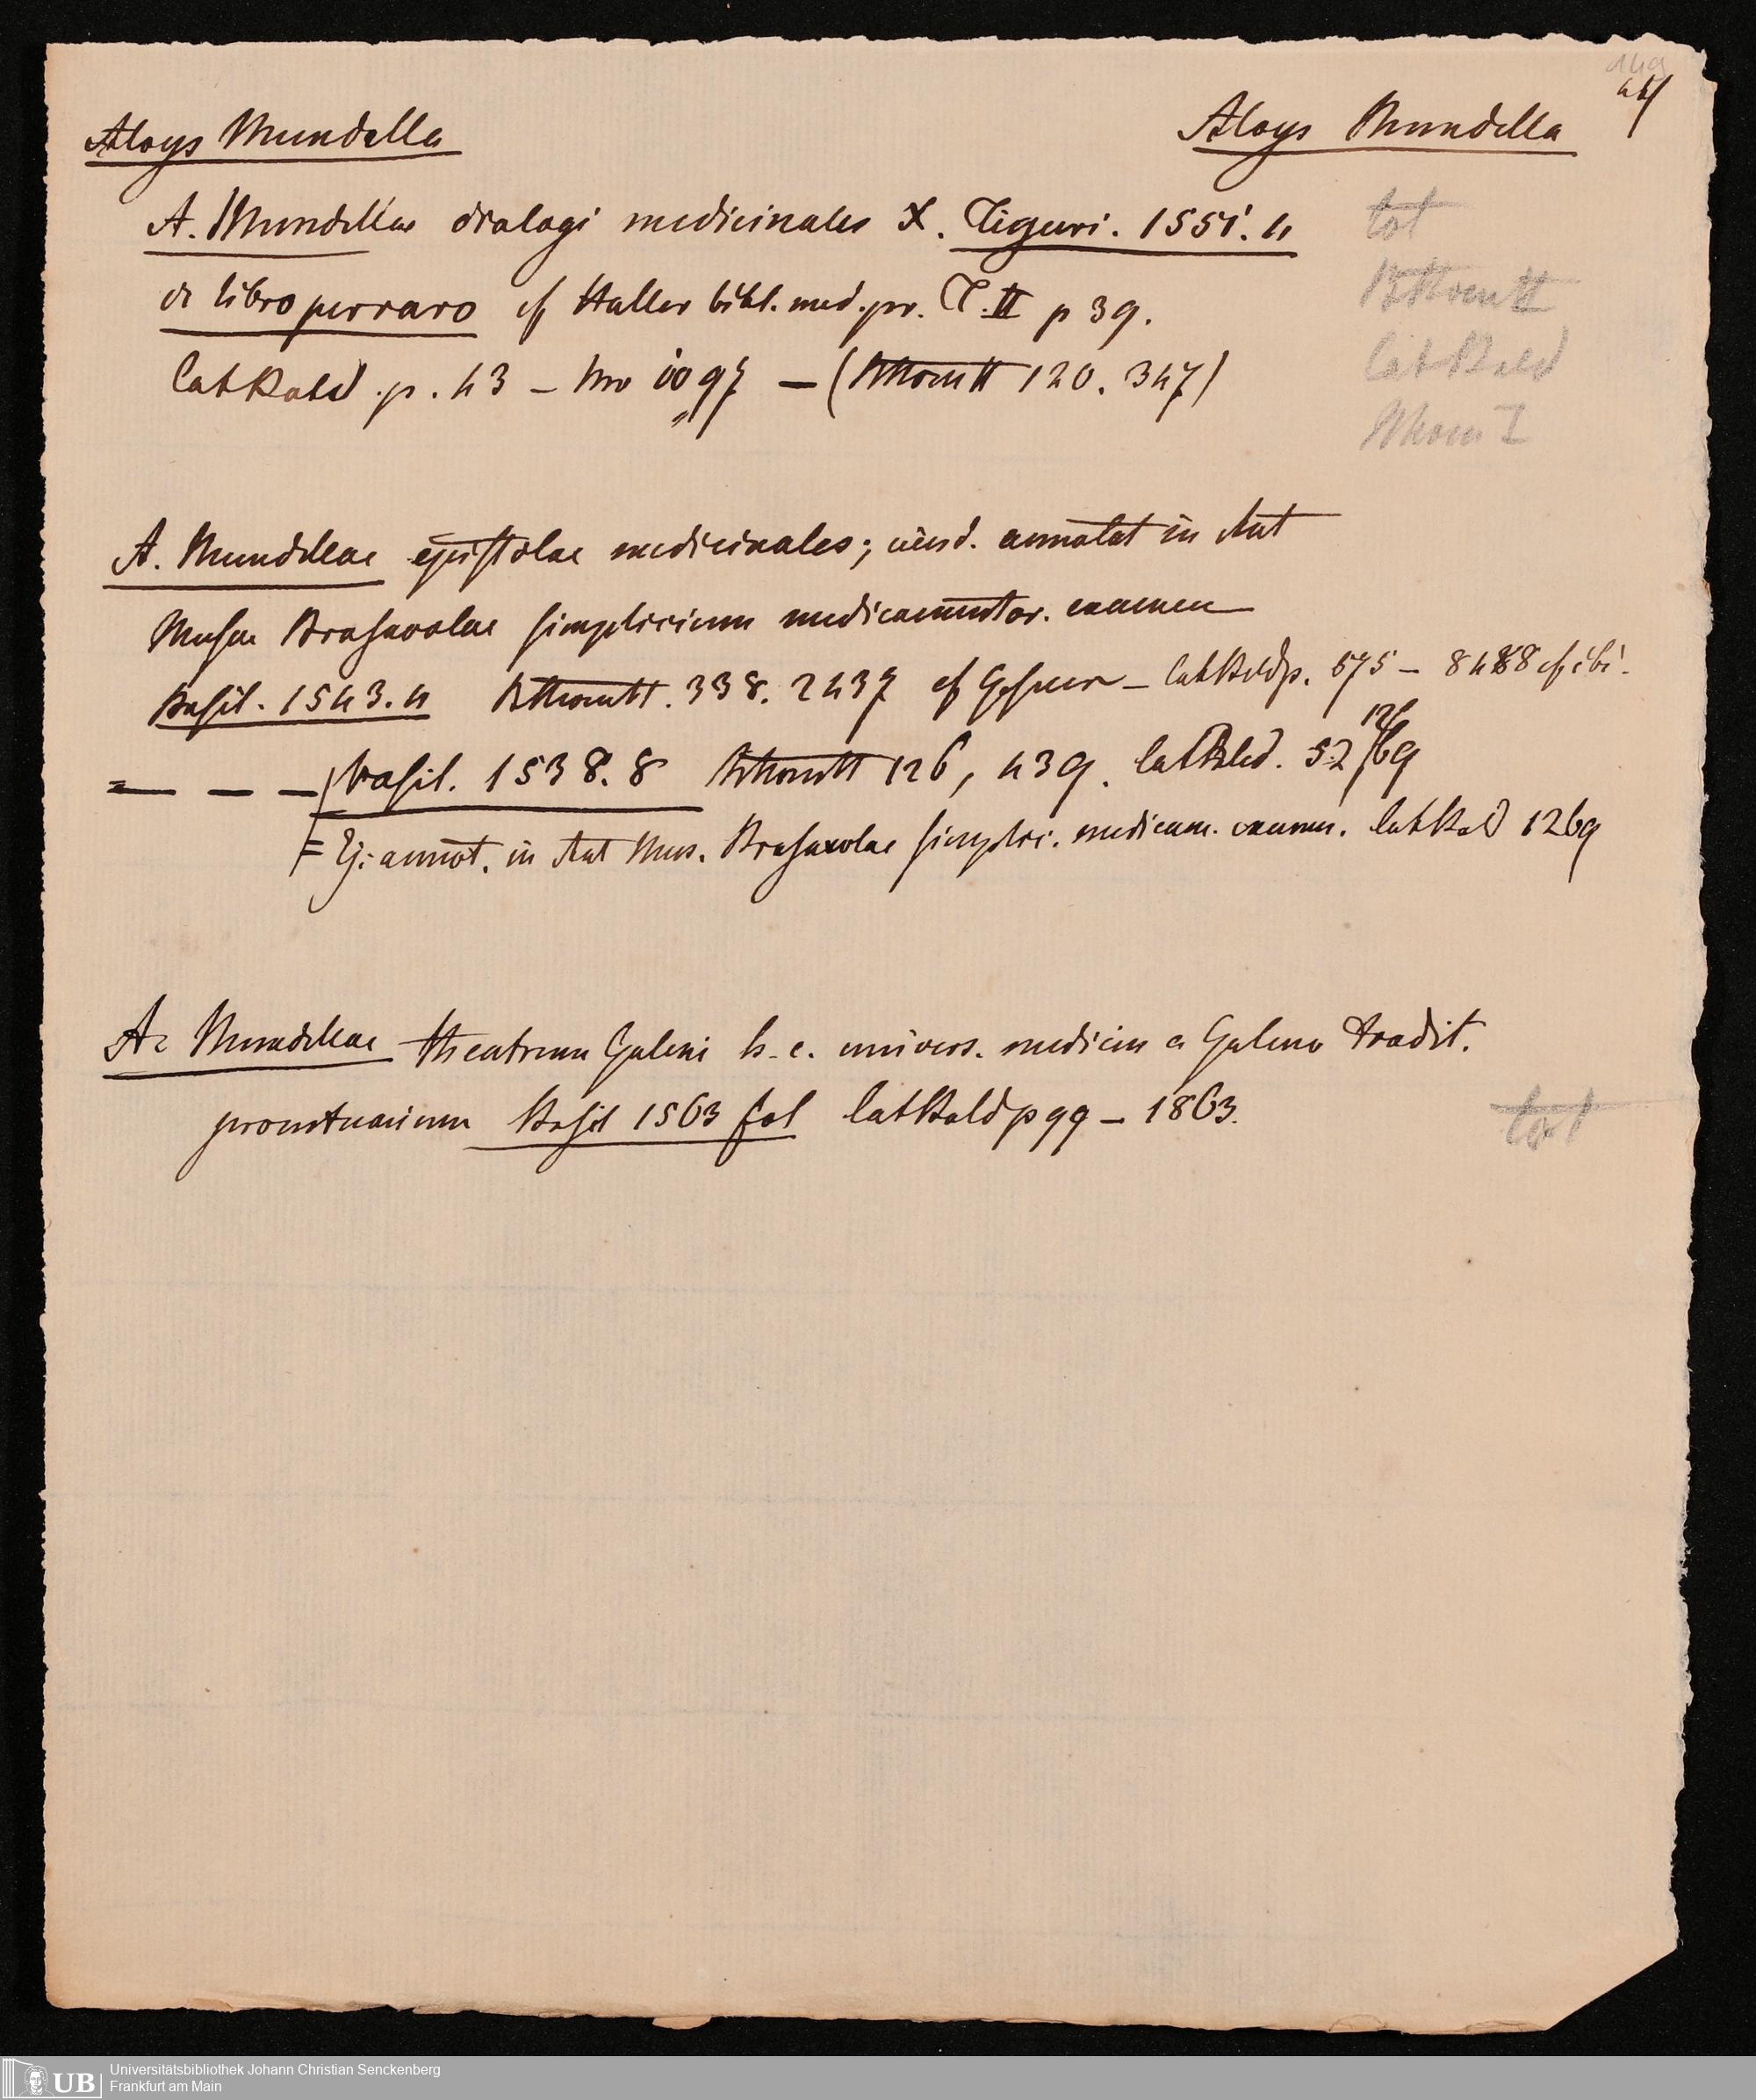 Aloys Mundella
Aloys Mundella
A. Mundellae dialogi medicinales X. Tiguri. 1551. 4
tot
de libro perraro cf Haller bibl. med. pr. T. II p 39.
BThomII
CatBald. p. 43 – Nro 1097 – (BThomII 120. 347)
CatBald
BThom I
A. Mundellae epistolae medicinales; eiusd. annotat in Ant
Musae Brasavolae simplicium medicamentor. examen
Basil. 1543. 4 BThomII. 338. 2437 cf Gesner – CatBald p. 575 – 8488 cf ibi.
= — — — Basil. 1538. 8 BThomII 126, 439. CatBald. 52 1269
= Ej. annot. in Ant Mus. Brasavolae simplic. medicam. examen. CatBald 1269
A. Mundellae theatrum Galeni h. e. univers. medicin a Galeno tradit.
promtuarium Basil 1563 fol CatBald p 99 – 1863.
tot
UB Universitätsbibliothek Johann Christian Senckenberg
Frankfurt am Main